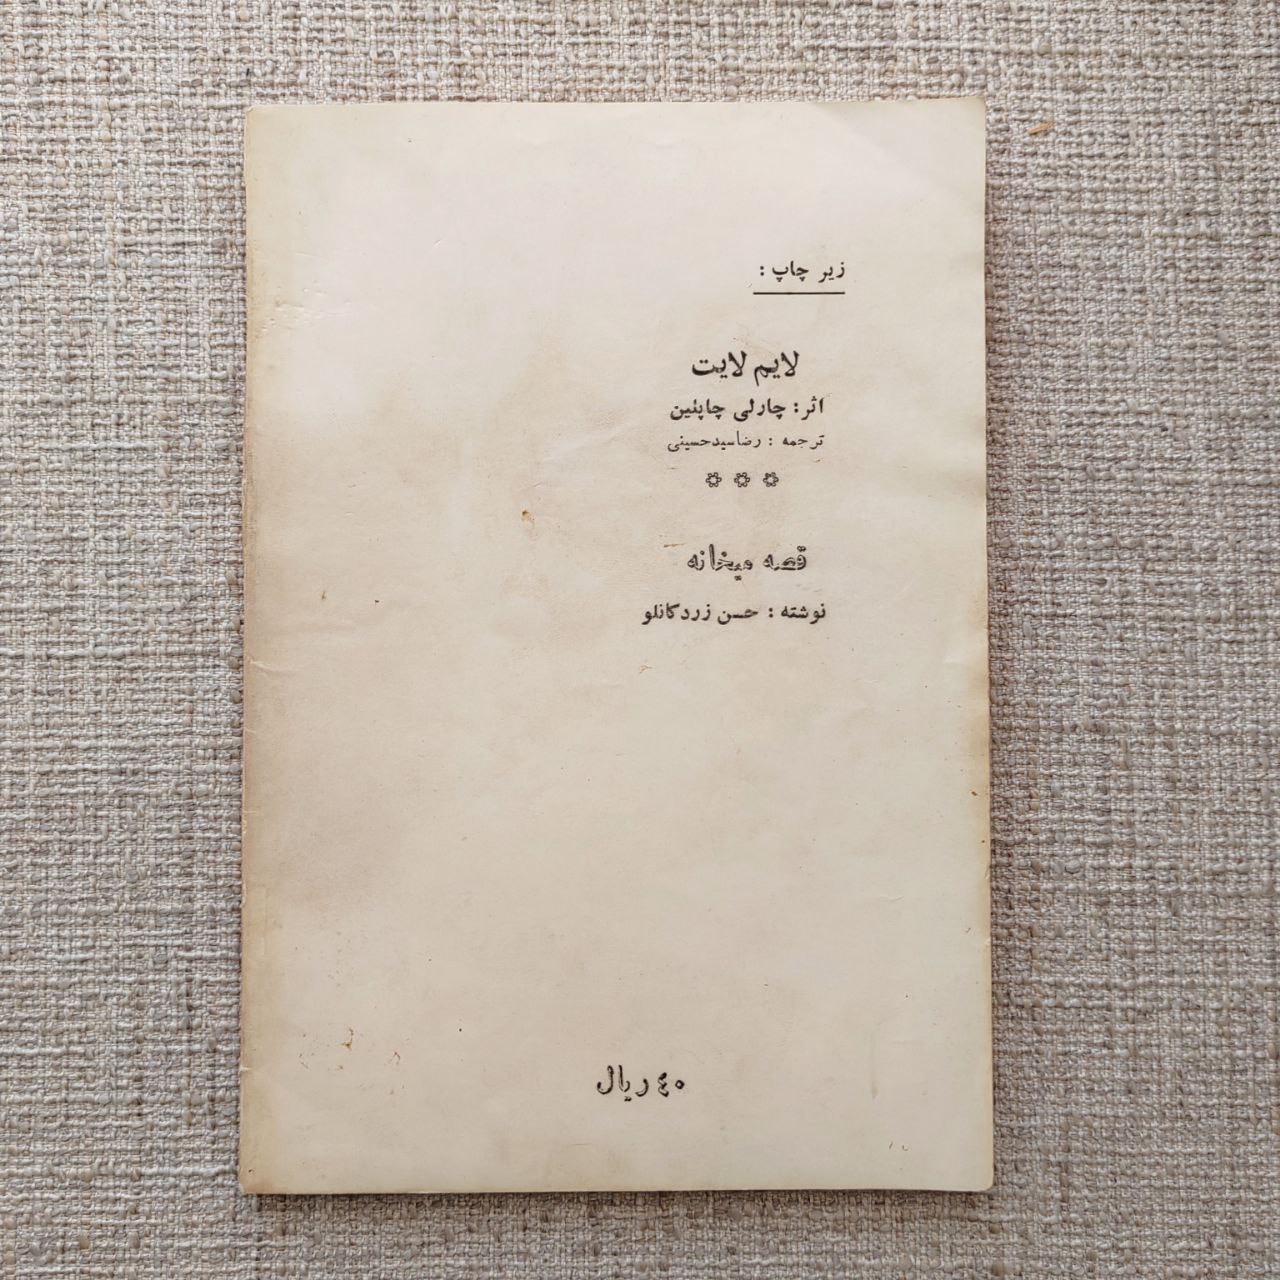 زیر چاپ :
لایم لایت
اثر : چارلی چاپلین
ترجمه : رضا سید حسینی
قصه میخانه
نوشته : حسن زردکانلو
٤٠ ریال